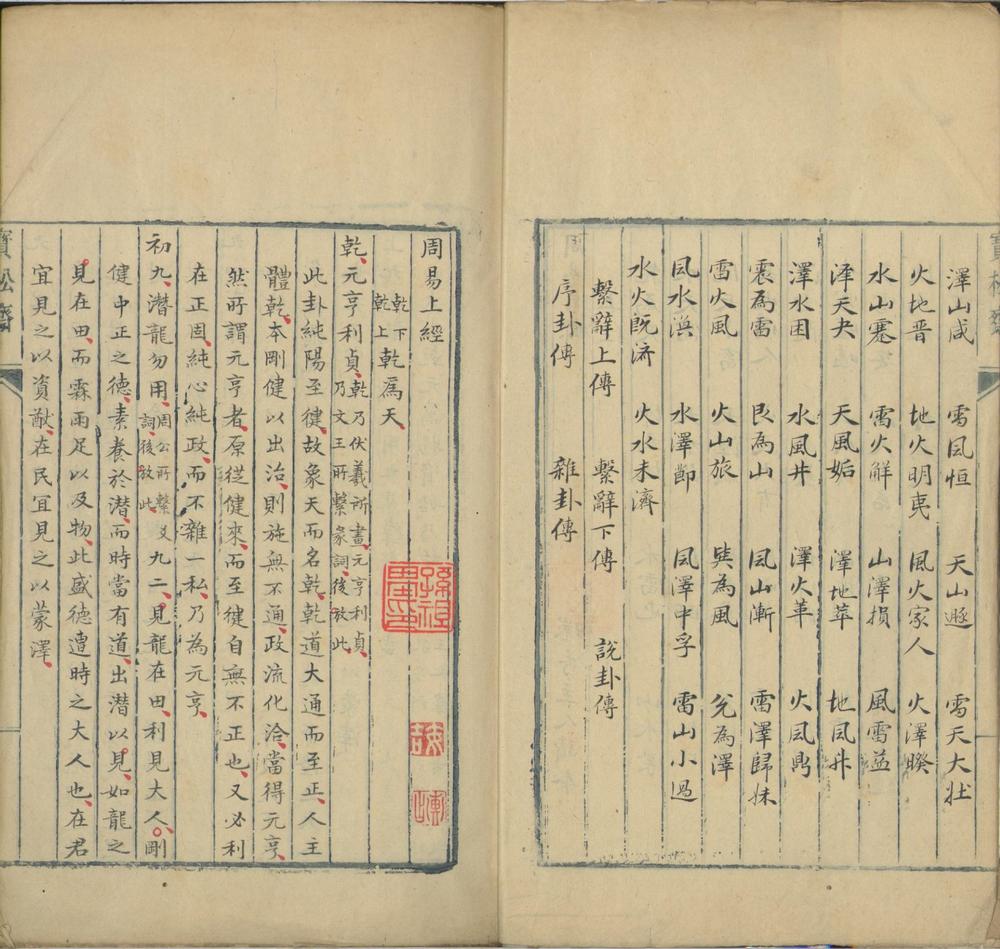 澤山咸 雷風恒 天山遯 雷天大壯
火地晋 地火明夷 風火家人 火澤睽
水山蹇 雷火解 山澤損 風雷益
澤天夬 天風姤 澤地萃 地風升
澤水困 水風井 澤火革 火風鼎
震為雷 艮為山 風山漸 雷澤歸妹
雷火風 火山旅 巽為風 兌為澤
風水渙 水澤節 風澤中孚 雷山小過
水火既济 火水未濟
繫辭上傳 繫辭下傳 說卦傳
序卦傳 雜卦傳
周易上經
乾下乾上 乾爲天
乾元亨利貞 乾乃伏羲所畫元亨利貞乃文王所繫彖詞後放此
此卦純陽至健故象天而名乾乾道大通而至正人主
體乾本剛健以出治則施無不通政流化洽當得元亨
然所謂元亨者原從健來而至健自無不正也又必利
在正固純心純政而不雜一私乃為元亨
初九潛龍勿用 周公所繫爻詞後放此 九二見龍在田利見大人剛
健中正之德素養於潛而時當有道出潛以見如龍之
見在田而霖雨足以及物此盛德遭時之大人也在君
宜見之以資猷在民宜見之以蒙澤
寶松齋